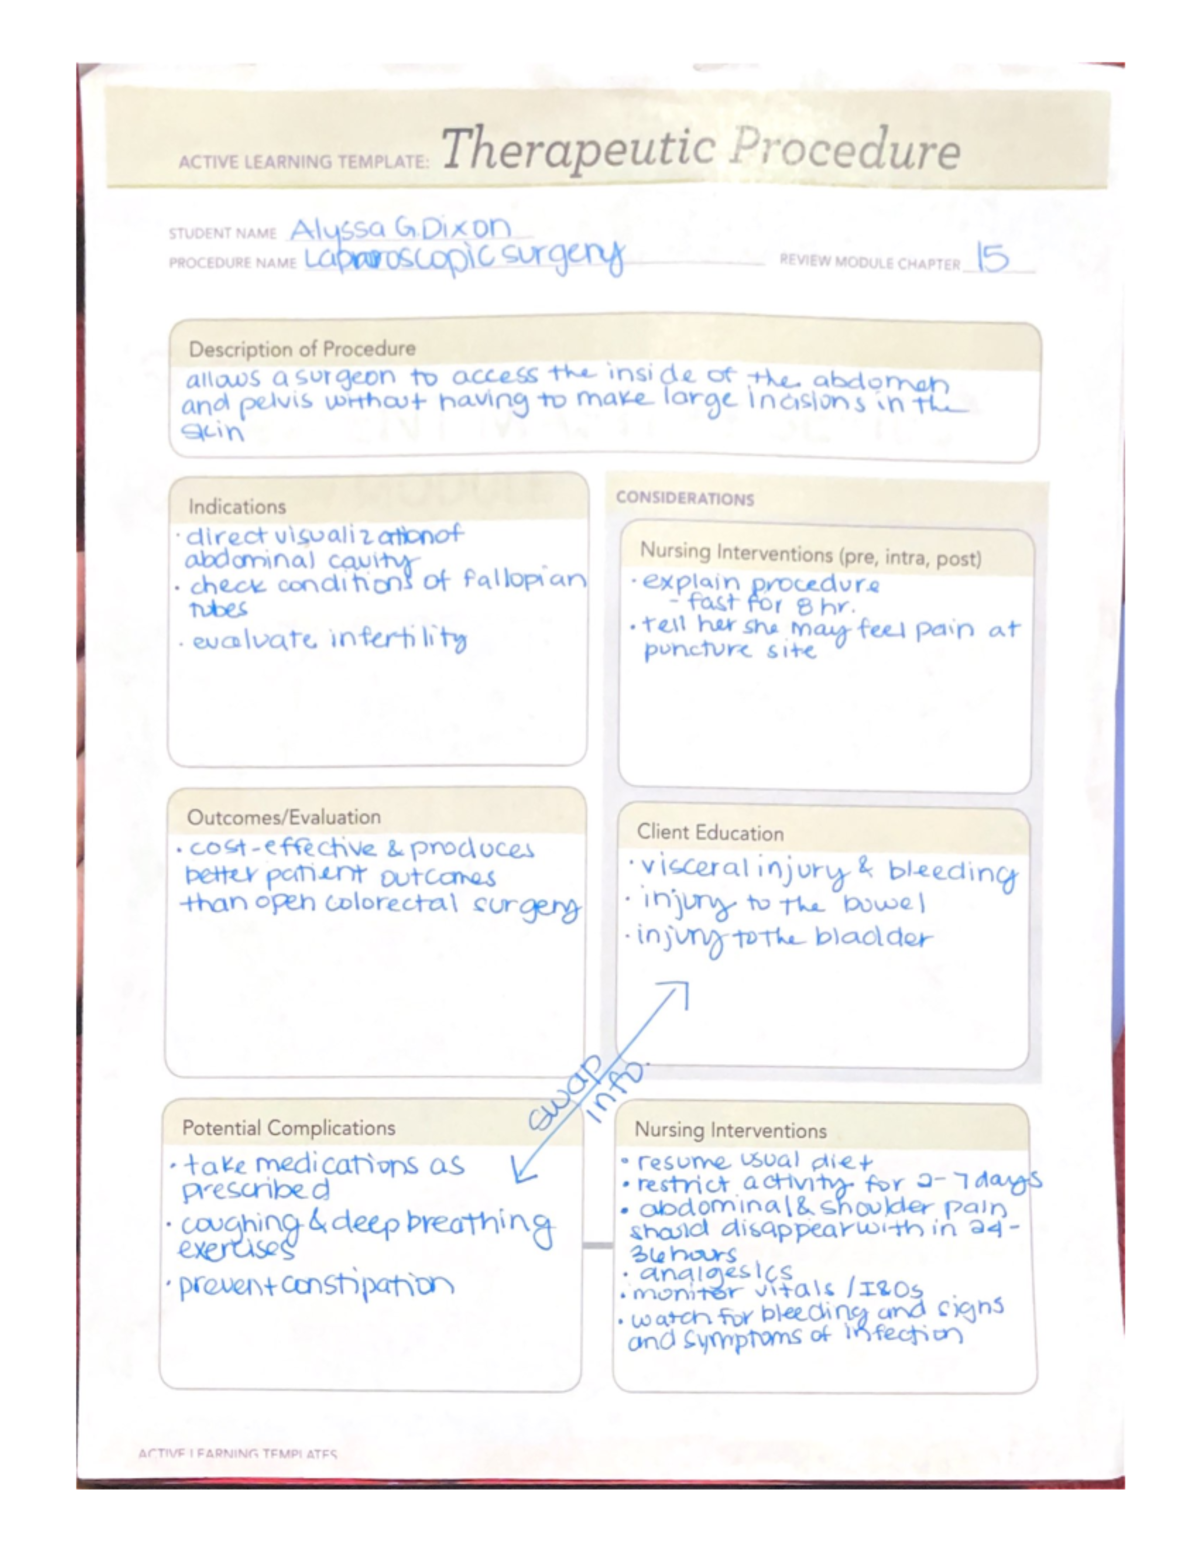 ACTIVE LEARNING TEMPLATE: Therapeutic Procedure
STUDENT NAME Alyssa G. Dixon
PROCEDURE NAME Laparoscopic surgery REVIEW MODULE CHAPTER 15
Description of Procedure
allows a surgeon to access the inside of the abdomen
and pelvis without having to make large incisions in the
skin
Indications
· direct visualization of
abdominal cavity
· check conditions of fallopian
tubes
· evaluate infertility
CONSIDERATIONS
Nursing Interventions (pre, intra, post)
· explain procedure
- fast for 8 hr.
· tell her she may feel pain at
puncture site
Outcomes/Evaluation
· cost-effective & produces
better patient outcomes
than open colorectal surgery
Client Education
· visceral injury & bleeding
· injury to the bowel
· injury to the bladder
swap
info.
Potential Complications
· take medications as
prescribed
· coughing & deep breathing
exercises
· prevent constipation
Nursing Interventions
• resume usual diet
• restrict activity for 2-7 days
• abdominal & shoulder pain
should disappear with in 24-
36 hours
· analgesics
· monitor vitals / I&Os
· watch for bleeding and signs
and symptoms of infection
ACTIVE LEARNING TEMPLATES